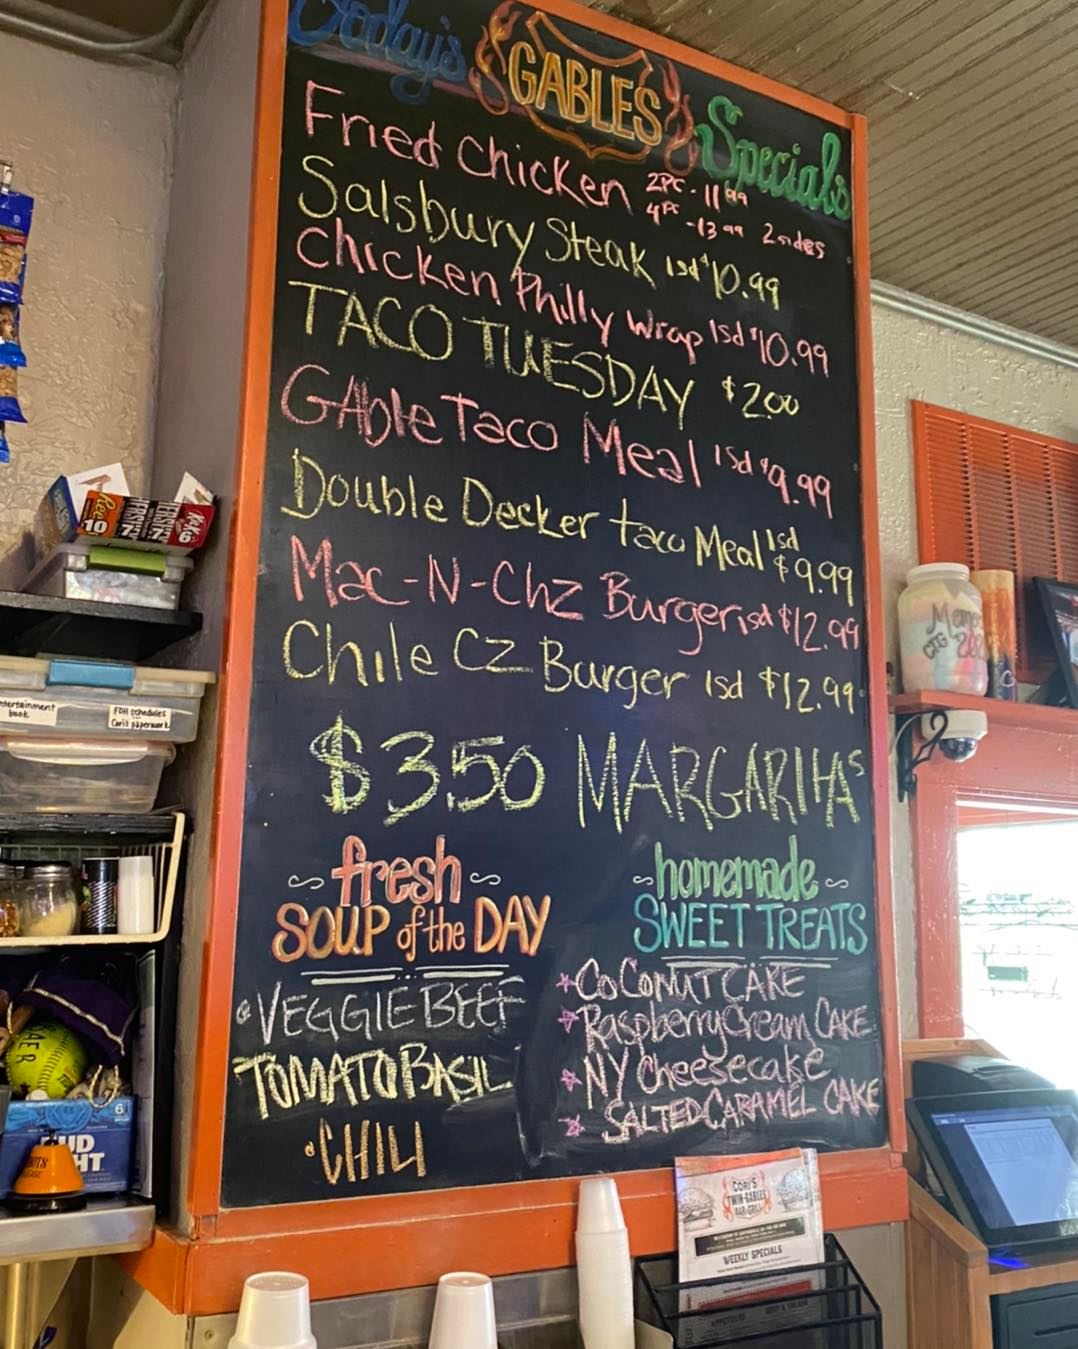 Today's GABLES Specials
Fried Chicken 2PC - 11 99
4PC - 13 99 2 sides
Salsbury Steak 1sd $10.99
Chicken Philly Wrap 1sd $10.99
TACO TUESDAY $2.00
GAble Taco Meal 1sd $9.99
Double Decker taco Meal 1sd $9.99
Mac-N-Chz Burger 1sd $12.99
Chile CZ Burger 1sd $12.99
$3.50 MARGARITAS
fresh
SOUP of the DAY
VEGGIE BEEF
TOMATO BASIL
CHILI
homemade
SWEET TREATS
COCONUT CAKE
Raspberry Cream CAKE
NY Cheesecake
SALTED CARAMEL CAKE
Reese
10
KitKat
6
entertainment
book
FOH schedules
Cori's paperwork
6
BUD
HT
CORI'S
TWIN GABLES
BAR & GRILL
WEEKLY SPECIALS